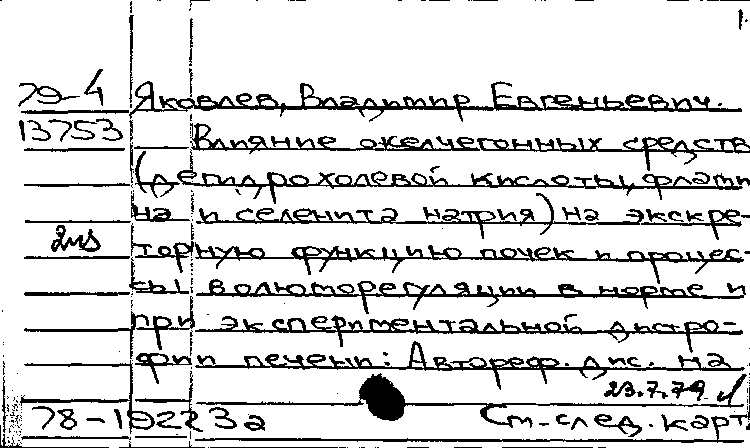 1.
79-4 Яковлев, Владимир Евгеньевич.
13753 Влияние желчегонных средств
(дегидрохолевой кислоты, флами
на и селенита натрия) на экскре-
торную функцию почек и процес-
сы волюморегуляции в норме и
при экспериментальной дистро-
фии печени: Автореф. дис. на
23.7.79
78-19223а См. след. карт